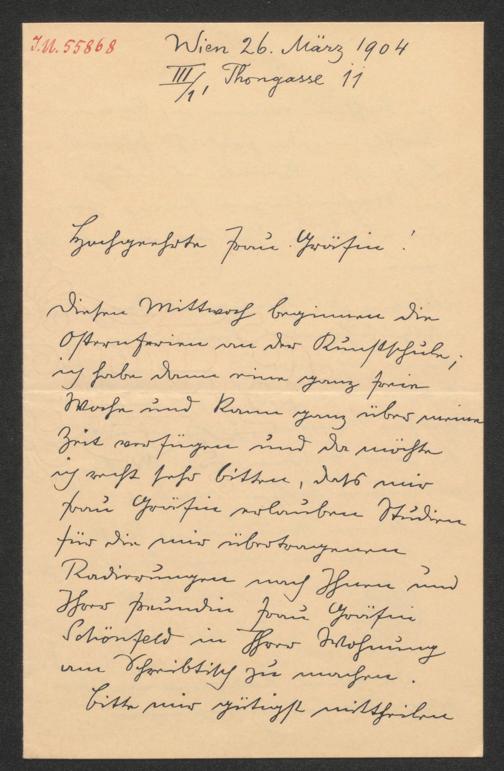 I.N. 55868
Wien 26. März 1904
III/1, Thongasse 11
Hochgeehrte Frau Gräfin!
Diesen Mittwoch beginnen die
Osternferien an der Kunstschule;
ich habe dann eine ganz freie
Woche und kann ganz über meine
Zeit verfügen und da möchte
ich recht sehr bitten, dass mir
Frau Gräfin erlauben Studien
für die mir übertragenen
Radierungen nach Ihnen und
Ihrer Freundin Frau Gräfin
Schönfeld in Ihrer Wohnung
am Schreibtisch zu machen.
Bitte mir gütigst mittheilen